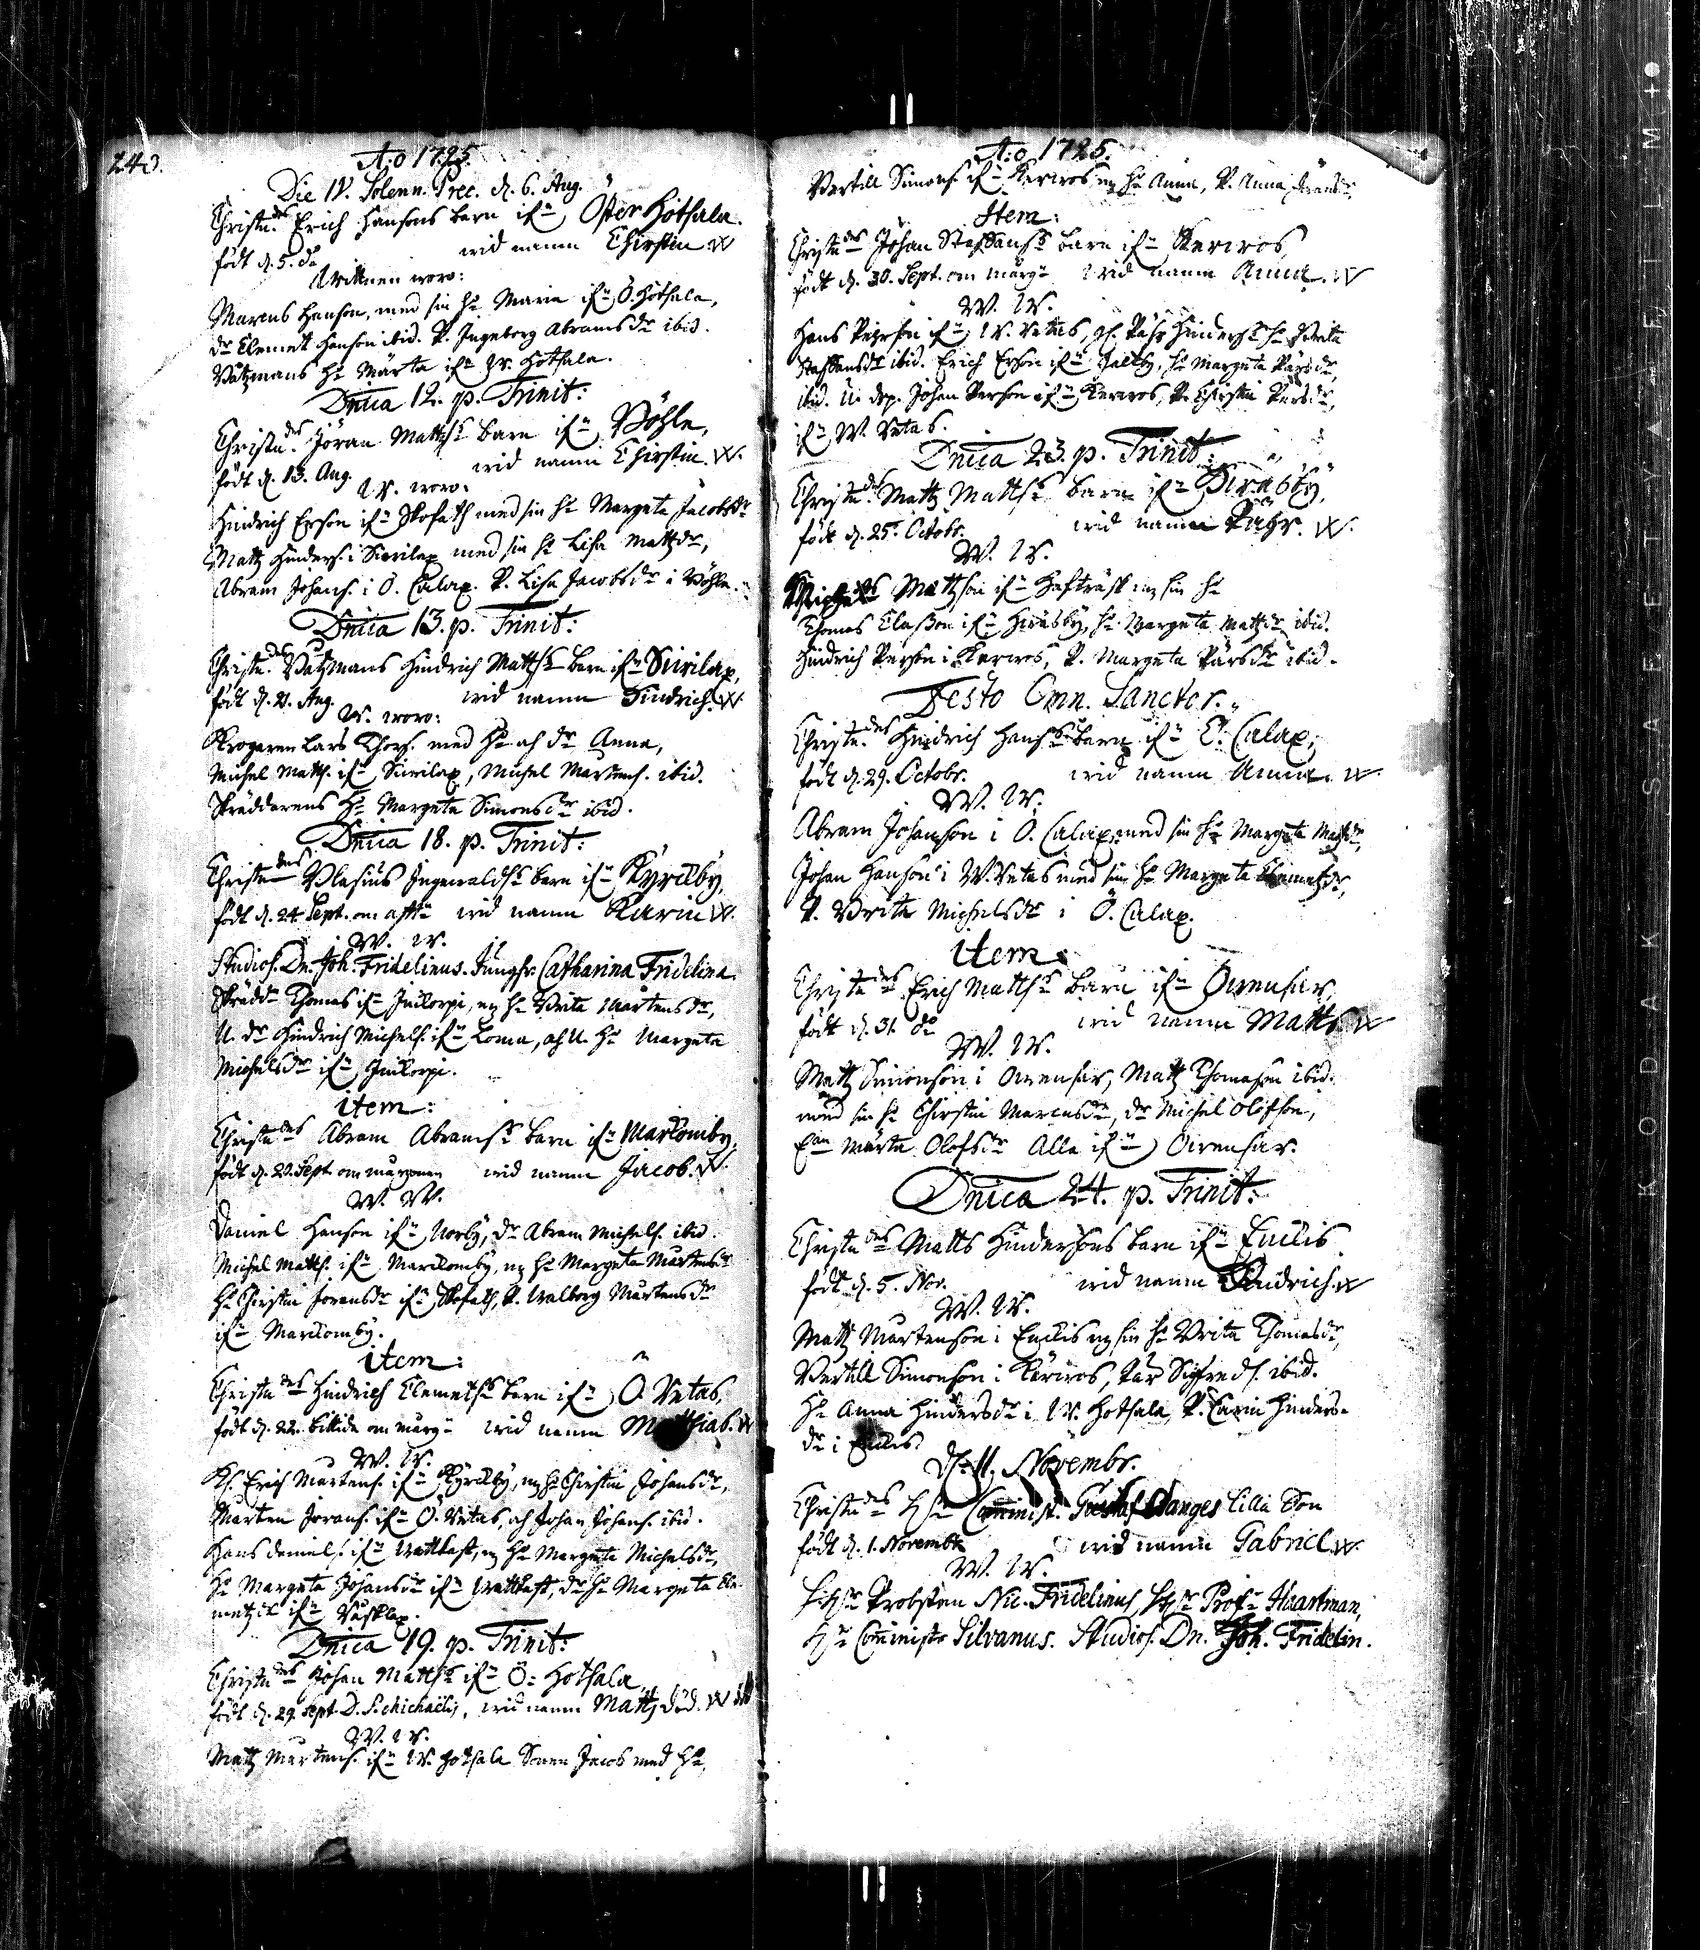 240.
A:o 1725.
Die IV. Solenn. Prec. d. 6. Aug.
Christn.des Erich Hansons barn ifrn Öster Hotsala.
födt d. 5. do wid namn Chirstin. W
Wittnen woro:
Marcus Hanson, med sin hu Maria ifrn Ö. Hotsala,
dr Clemet Hanson ibid. P. Ingeborg Abramsdr ibid.
hu Märta ifrn W. Hotsala.
Dnica 12. p. Trinit:
Christn.des Jöran Mattss barn ifrn Böhle,
födt d. 13. Aug. wid namn Chirstin. W.
W. woro:
Hindrich Erson ifrn Skofath med sin hu Margeta Jacobsdr
Matz Hinders. i Siwilax med sin hu Lisa Mattzdr,
Abram Johans. i Ö. Calax. P. Lisa Jacobsdr i Böhle.
Dnica 13. p. Trinit:
Christn.des Hindrich Mattss barn ifrn Siwilax,
födt d. 21. Aug. wid namn Hindrich. W
W. woro:
Krogaren Lars Thoss. med hu och dr Anna,
Michel Matts. ifrn Siwilax, Michel Martens. ibid.
Skräddarens hu Margeta Simonsdr ibid.
Dnica 18. p. Trinit:
Christndes Blasius Ingewaldss barn ifrn Kyrckby,
födt d. 24. Sept. om afftn wid namn Karin W.
W. W.
Studios. Dn. Joh. Fridelinus. Jungfr. Catharina Fridelina
Skrädd. Thomas ifrn Juckorpi, mz hu Brita Mårtensdr,
U. dr Hindrich Michels. ifrn Loma, och U. hu Margeta
Michelsdr ifrn Juckorpi.
item:
Christndes Abram Abramss barn ifrn Marckomby,
födt d. 20. Sept. om morgonen wid namn Jacob. W.
W. W.
Daniel Hanson ifrn Norby, dr Abram Michels. ibid.
Michel Matts. ifrn Marckomby, mz hu Margeta Martensdr
hu Chirstin Joransdr ifrn Skofath, P. Walborg Mårtensdr
ifrn Marckomby.
item:
Christndes Hindrich Clemetss barn ifrn Ö. Vetas,
födt d. 22. bittida om morgn wid namn Matthias. W
W. W.
Erich Martens. ifrn Kyrckby, mz hu Chirstin Johansdr,
Marten Jorans. ifrn Ö. Vetas, och Johan Johans. ibid.
Hans Daniels. ifrn Wattkast, mz hu Margeta Michelsdr,
hu Margeta Johansdr ifrn Wattkast, dr hu Margeta Cle-
metzdr ifrn
Dnica 19. p. Trinit:
Christndes Johan Mattss ifrn Ö. Hotsala,
födt d. 29. Sept. D. S. Michaelis, wid namn Matz död. W
W. W.
Matz Martens. ifrn W. Hotsala Sonen Jacob med hu,
A:o 1725.
Bertill Simons. ifrn Kerwos mz hu Anna, P. Anna
Item:
Christndes Johan Staffanss barn ifrn Kerwos,
födt d. 30. Sept. om morgn wid namn Anna. W
W. W.
Hans Pährson ifrn W. Vetas, hu Brita
Staffansdr ibid. Erich Erson ifrn Jälby, hu Margeta Pärsdr,
ibid. U. drg. Johan Person ifrn Kerwos, P. Chirstin Persdr,
ifrn W. Vetas.
Dnica 23. p. Trinit:
Christn.des Matz Mattss barn ifrn Hiwäsby,
födt d. 25. Octobr. wid namn Pähr. W.
W. W.
Mattzson ifrn Haffträsk mz sin hu
Thomas Classon ifrn Hiwäsby, hu Margeta Mattzdr ibid.
Hindrich Person i Kerwos, P. Margeta Pärsdr ibid.
Festo Omn. Sanctor.
Christn.des Hindrich Hanss barn ifrn C. Calax,
födt d. 29. Octobr. wid namn Anna. W.
W. W.
Abram Johanson i Ö. Calax, med sin hu Margeta Mattzdr,
Johan Hanson i W. Vetas med sin hu Margeta Clemetzdr,
P. Brita Michelsdr i Ö. Calax.
item:
Christndes Erich Mattss barn ifrn Owensar,
födt d. 31. do wid namn Matts. W
W. W.
Matz Simonson i Owensar, Matz Thomasson ibid.
med sin hu Chirstin Marcusdr, dr Michel Olofson,
Märta Olofsdr Alla ifrn Owensar.
Dnica 24. p. Trinit:
Christndes Matts Hindersons barn ifrn Enckis
födt d. 5. Nov. wid namn Hindrich. W
W. W.
Matz Martenson i Enckis mz sin hu Brita Thomasdr,
Bertill Simonson i Kärwos, Pär Sigfreds. ibid.
hu Anna Hindersdr i W. Hotsala, P. Carin Hinders-
dr i Enckis.
d. 11. Novembr.
Christndes Hr Comminist. Gustaf Danges lilla Son
födt d. 1. Novembr. wid namn Gabriel. W.
W. W.
Hr Probsten Nic. Fridelinus, Hr Profr Haartman,
Hr Commini­str Silvanus. Studios. Dn. Joh. Fridelin.
KODAK SAFETY FILM